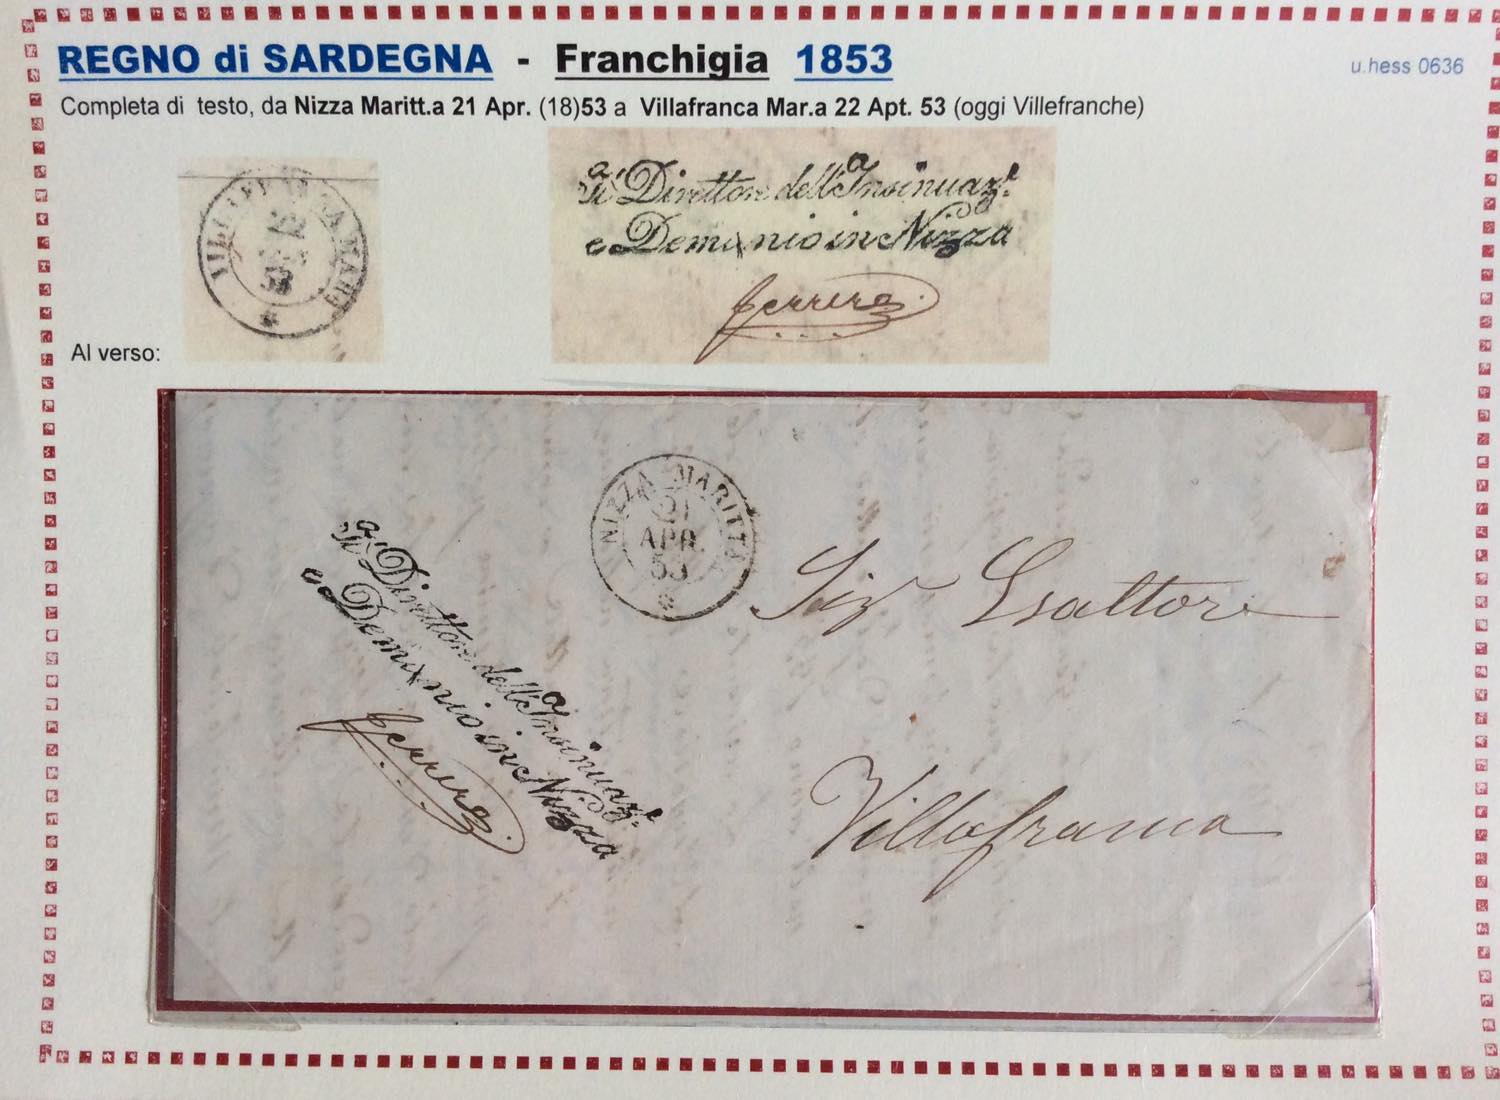 REGNO di SARDEGNA - Franchigia 1853
u.hess 0636
Completa di testo, da Nizza Maritt.a 21 Apr. (18)53 a Villafranca Mar.a 22 Apt. 53 (oggi Villefranche)
53
Direttore dell'Insinuaz.e
e Demanio in Nizza
Ferrero
Al verso:
NIZZA MARITTA
21
APR.
53
Direttore dell'Insinuaz.e
e Demanio in Nizza
Ferrero
Sigr Esattore
Villafranca